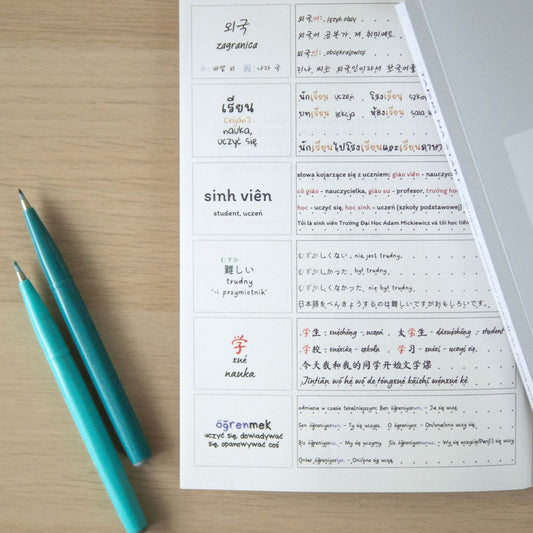 외국
zagranica
外 : 바깥 외 國 : 나라 국
외국어: język obcy
외국어 공부가 제 취미예요.
외국인: obcokrajowiec
외국인이라서 한국어를
เรียน
[rijan]
nauka,
uczyć się
นักเรียน uczeń โรงเรียน
บทเรียน lekcja ห้องเรียน sala
นักเรียนไปโรงเรียนและเรียนภาษา
sinh viên
student, uczeń
słowa kojarzące się z uczniem: giáo viên - nauczyciel
cô giáo - nauczycielka, giáo sư - profesor, trường học
học - uczyć się, học sinh - uczeń (szkoły podstawowej)
Tôi là sinh viên Trường Đại Học Adam Mickiewicz và tôi học tiến
むずか
難しい
trudny
'-i przymiotnik'
むずかしくない, nie jest trudny,
むずかしかった, był trudny,
むずかしくなかった, nie był trudny,
日本語をべんきょうするのは難しいですがおもしろいです。
学
xué
nauka
学生 - xuéshēng - uczeń 大学生 - dàxuéshēng - student
学校 - xuéxiào - szkoła 学习 - xuéxí - uczyć się
今天我和我的同学开始文学课
Jīntiān wǒ hé wǒ de tóngxué kāishǐ wénxué kè
öğrenmek
uczyć się, dowiadywać
się, opanowywać coś
odmiana w czasie teraźniejszym: Ben öğreniyorum - Ja się uczę
Sen öğreniyorsun - Ty się uczysz O öğreniyor - On/ona/ono uczy się
Biz öğreniyoruz - My się uczymy Siz öğreniyorsunuz - Wy się uczycie/Pan(i) się uczy
Onlar öğreniyorlar - Oni/one się uczą